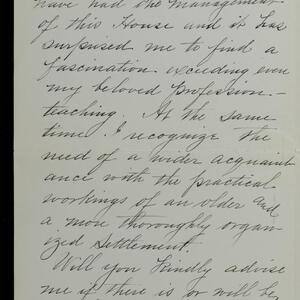 have had the management
of this House and it has
surprised me to find a
fascination exceeding even
my beloved profession -
teaching. At the same
time I recognize the
need of a wider acquaint
ance with the practical
workings of an older and
a more thoroughly organ
ized settlement.
Will you kindly advise
me if there is or will be